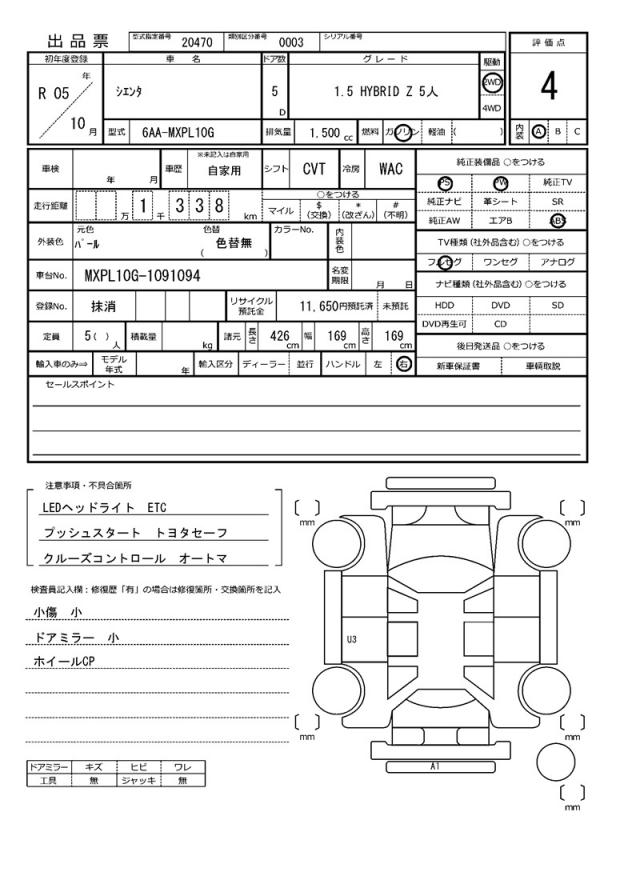 出品票 型式指定番号 20470 類別区分番号 0003 シリアル番号
評価点
初年度登録 車名 ドア数 グレード 駆動
R 05 年 シエンタ 5 D 1.5 HYBRID Z 5人 2WD 4
4WD
10 月 型式 6AA-MXPL10G 排気量 1.500 cc 燃料 ガソリン 軽油 ( ) 内装 A B C
車検 年 月 車歴 ※未記入は自家用 自家用 シフト CVT 冷房 WAC 純正装備品 ○をつける
PS PW 純正TV
走行距離 万 1 千 3 3 8 km ○をつける 純正ナビ 革シート SR
マイル $ (交換) * (改ざん) # (不明) 純正AW エアB ABS
外装色 元色 パール 色替 ( 色替無 ) カラーNo. 内装色 TV種類 (社外品含む) ○をつける
フルセグ ワンセグ アナログ
車台No. MXPL10G-1091094 名変期限 月 日 ナビ種類 (社外品含む) ○をつける
登録No. 抹消 リサイクル預託金 11,650円預託済 未預託 HDD DVD SD
DVD再生可 CD
定員 5( ) 人 積載量 kg 諸元 長さ 426 cm 幅 169 cm 高さ 169 cm 後日発送品 ○をつける
輸入車のみ⇒ モデル年式 年 輸入区分 ディーラー 並行 ハンドル 左 右 新車保証書 車輌取説
セールスポイント
注意事項・不具合箇所
LEDヘッドライト ETC
プッシュスタート トヨタセーフ
クルーズコントロール オートマ
検査員記入欄:修復歴「有」の場合は修復箇所・交換箇所を記入
小傷 小
ドアミラー 小
ホイールCP
ドアミラー キズ ヒビ ワレ
工具 無 ジャッキ 無
[ ] mm
[ ] mm
U3
[ ] mm
[ ] mm
A1
[ ] mm